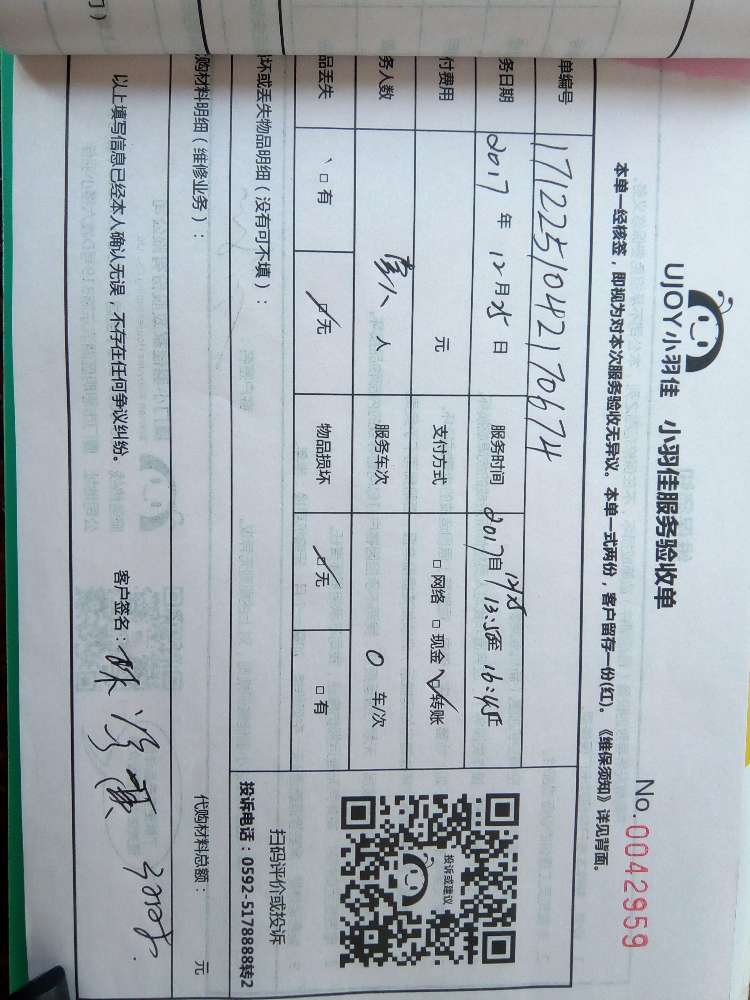 UJOY小羽佳 小羽佳服务验收单
No.0042959
本单一经核签，即视为对本次服务验收无异议。本单一式两份，客户留存一份(红)。《维保须知》详见背面。
单编号 1712251042170674
务日期 2017 年 12 月 25 日 服务时间 2017 12/25 自 13:5 至 16:45
付费用 元 支付方式 □ 网络 □ 现金 ☑ 转账
务人数 人 服务车次 0 车/次
品丢失 □ 有 ☑ 无 物品损坏 ☑ 无 □ 有
投诉或建议
扫码评价或投诉
投诉电话：0592-5178888转2
坏或丢失物品明细（没有可不填）：
购材料明细（维修业务）：
代购材料总额： 元
以上填写信息已经本人确认无误，不存在任何争议纠纷。 客户签名：